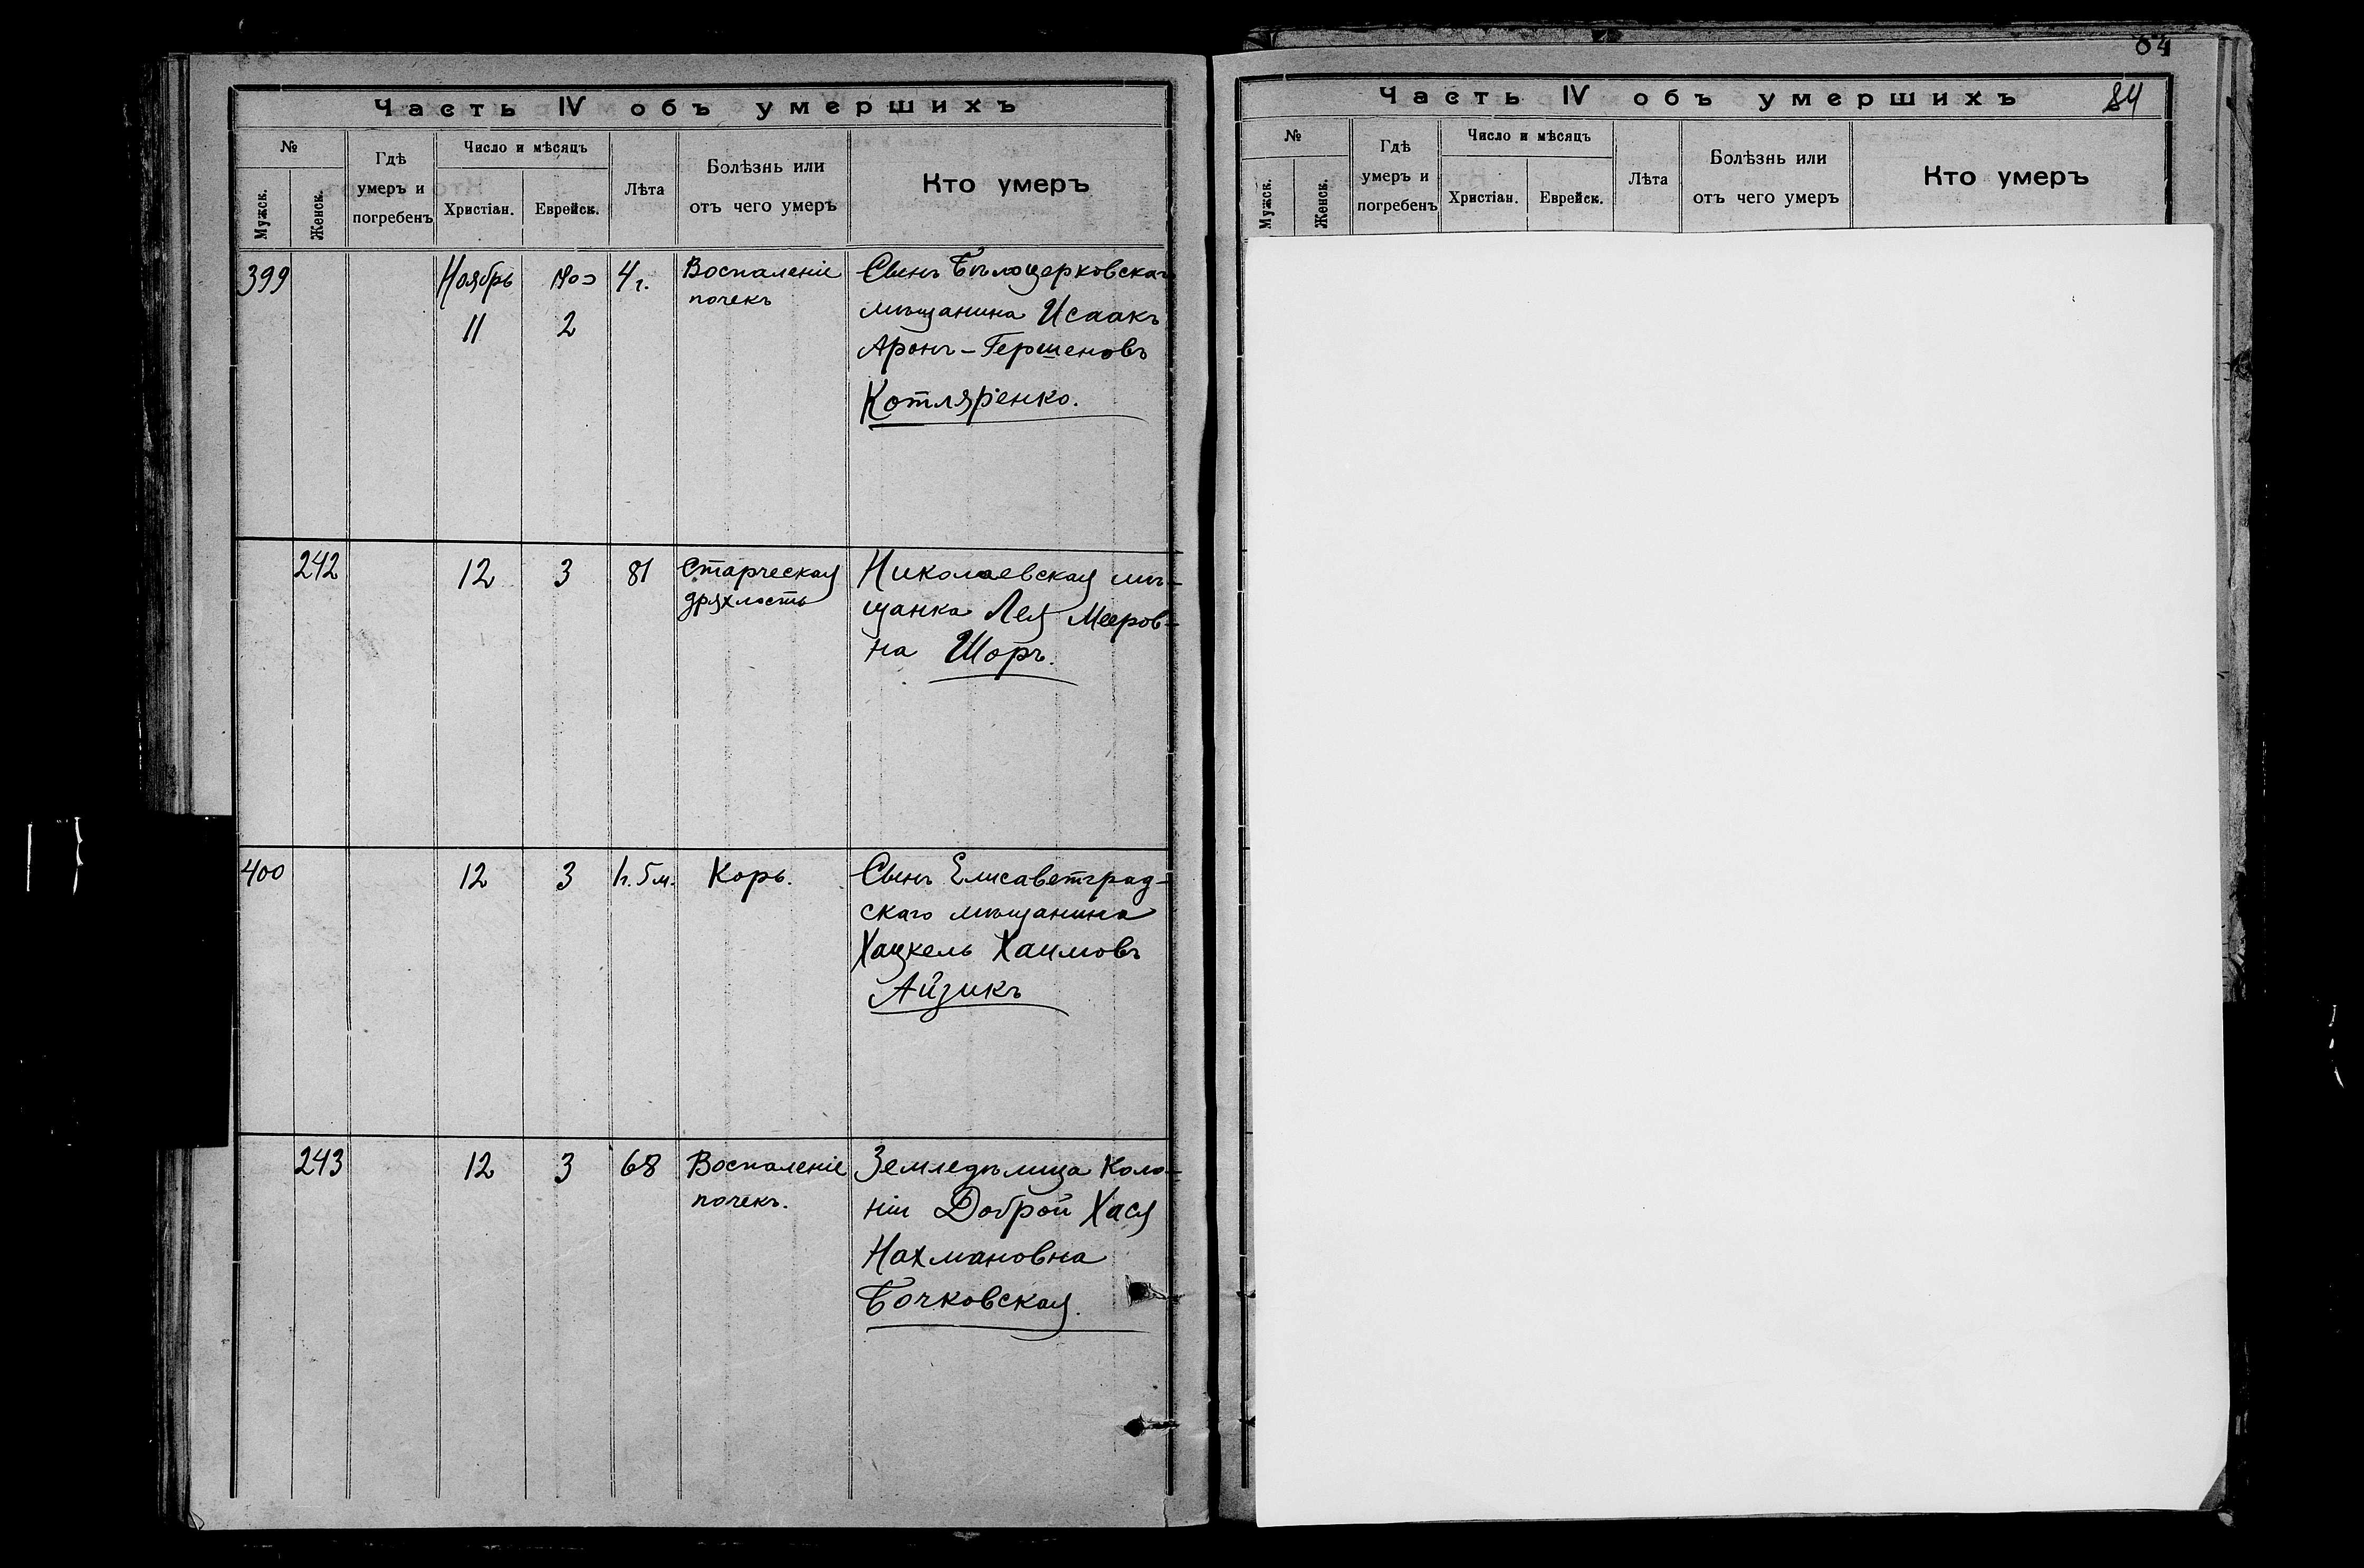 Часть IV объ умершихъ
№
Мужск.
Женск.
Гдѣ
умеръ и
погребенъ
Число и мѣсяцъ
Христіан.
Еврейск.
Лѣта
Болѣзнь или
отъ чего умеръ
Кто умеръ
399
Ноябрь
11
2
4 г.
Воспаленіе
почекъ
Сынъ Бѣлоцерковскаго
мѣщанина Исаакъ
Аронъ-Гершеновъ
Котляренко.
242
12
3
81
Старческая
дряхлость
Николаевская мѣ-
щанка Лея Мееров-
на Шоръ.
400
12
3
1г. 5м.
Корь.
Сынъ Елисаветград-
скаго мѣщанина
Хацкель Хаимовъ
Айзикъ
243
12
3
68
Воспаленіе
почекъ.
Земледѣлица Коло-
ніи Доброй Хася
Нахмановна
Бочковская.
84
Часть IV объ умершихъ
84
№
Мужск.
Женск.
Гдѣ
умеръ и
погребенъ
Число и мѣсяцъ
Христіан.
Еврейск.
Лѣта
Болѣзнь или
отъ чего умеръ
Кто умеръ